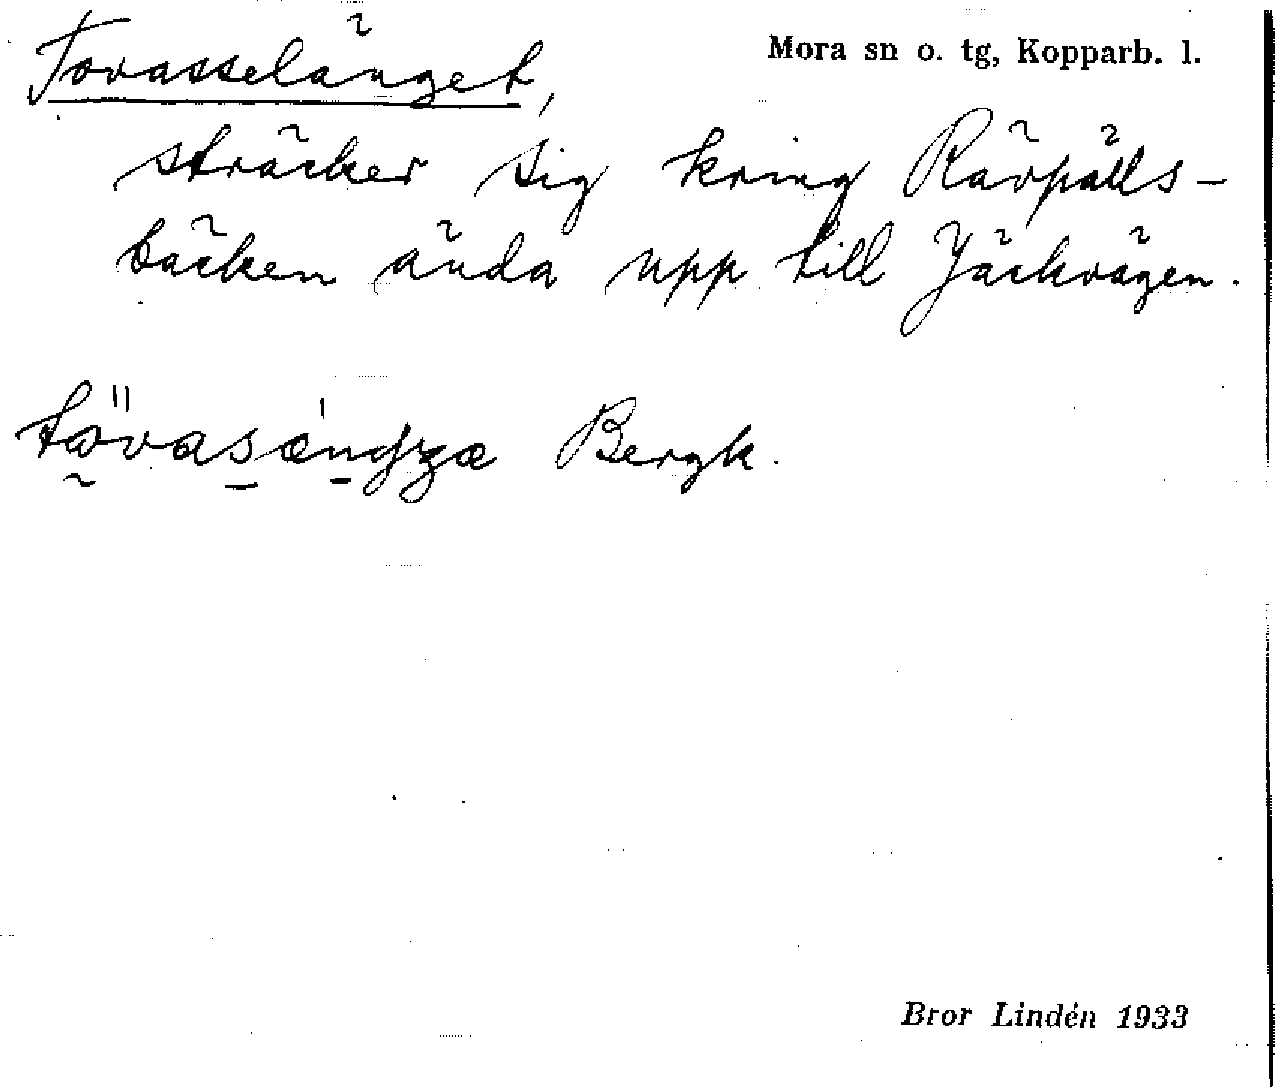 Tovasselänget,
Mora sn o. tg, Kopparb. l.
sträcker sig kring Rävpälls-
bäcken ända upp till Jäckvägen.
Bergk.
Bror Lindén 1933